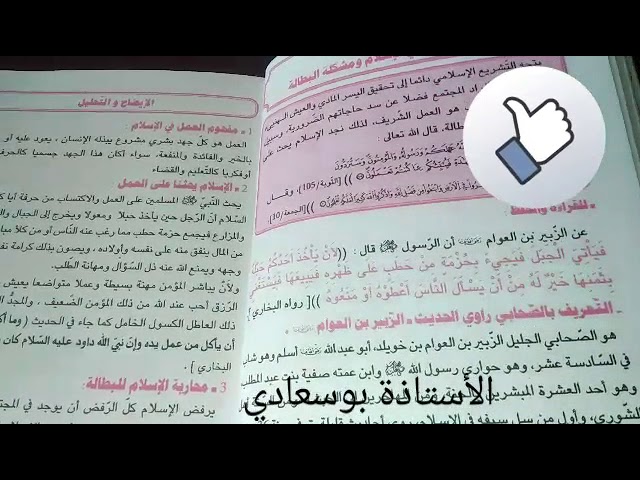 الإسلام ومشكلة البطالة
يتجه التشريع الإسلامي دائما إلى تحقيق اليسر المادي والعيش
اد المجتمع فضلا عن سد حاجاتهم الضرورية،
هو العمل الشريف، لذلك نجد الإسلام يحث على
طالة. قال الله تعالى :
))[التوبة/105)، وقال
))[الجمعة/10).
للقراءة والحفظ :
عن الزّبير بن العوام ﷺ أن الرّسول ﷺ قال : ((لأنْ يَأْخُذَ أَحَدُكُمْ حَبْلَهُ
فَيَأْتِيَ الجَبَلَ فَيَجِيءَ بِحُزْمَةٍ مِنْ حَطَبٍ عَلَى ظَهْرِهِ فَيَبِيعَهَا فَيَسْتَغْنِيَ
بِثَمَنِهَا خَيْرٌ لَهُ مِنْ أَنْ يَسْأَلَ النَّاسَ أَعْطَوْهُ أَوْ مَنَعُوهُ ))[ رواه البخاري ]
- التّعريف بالصّحابي راوي الحديث - الزّبير بن العوام
هو الصّحابي الجليل الزّبير بن العوام بن خويلد، أبو عبدالله أسلم وهو شاب
في السّادسة عشر، وهو حواري رسول الله ﷺ وابن عمته صفية بنت عبد المطلب
وهو أحد العشرة المبشرين
الشّورى، وأول من سل سيفه في الإسلام
الإيضاح و التحليل
1 - مفهوم العمل في الإسلام
العمل هو كلّ جهد بشري مشروع يبذله الإنسان ، يعود عليه أو
بالخير والفائدة والمنفعة، سواء أكان هذا الجهد جسميا كالحرف
أوفكريا كالتّعليم والقضاء
2 - الإسلام يحثنا على العمل
يحث النّبيّ ﷺ المسلمين على العمل والاكتساب من حرفة أيا كا
السّلام أنّ الرّجل حين يأخذ حبلا ومعولا ويخرج إلى الجبال وال
والمزارع فيجمع حزمة حطب مما رغب عنه النّاس أو من كلأ مبا
من المال ينفق منه على نفسه وأولاده ، ويصون بذلك كرامة نف
وجهه ويمنع الله عنه ذل السّؤال ومهانة الطّلب.
ولأنْ يباشر المؤمن مهنة بسيطة وعملا متواضعا يعيش
الرّزق أحب عند الله من ذلك المؤمن الضّعيف ، والمجدّ ال
ذلك العاطل الكسول الخامل كما جاء في الحديث ( وما أك
أن يأكل من عمل يده، وإنّ نبيّ الله داود عليه السّلام كان
البخاري ].
3 - محاربة الإسلام للبطالة:
يرفض الإسلام كلّ الرّفض أن يوجد في المجت
الأستاذة بوسعادي